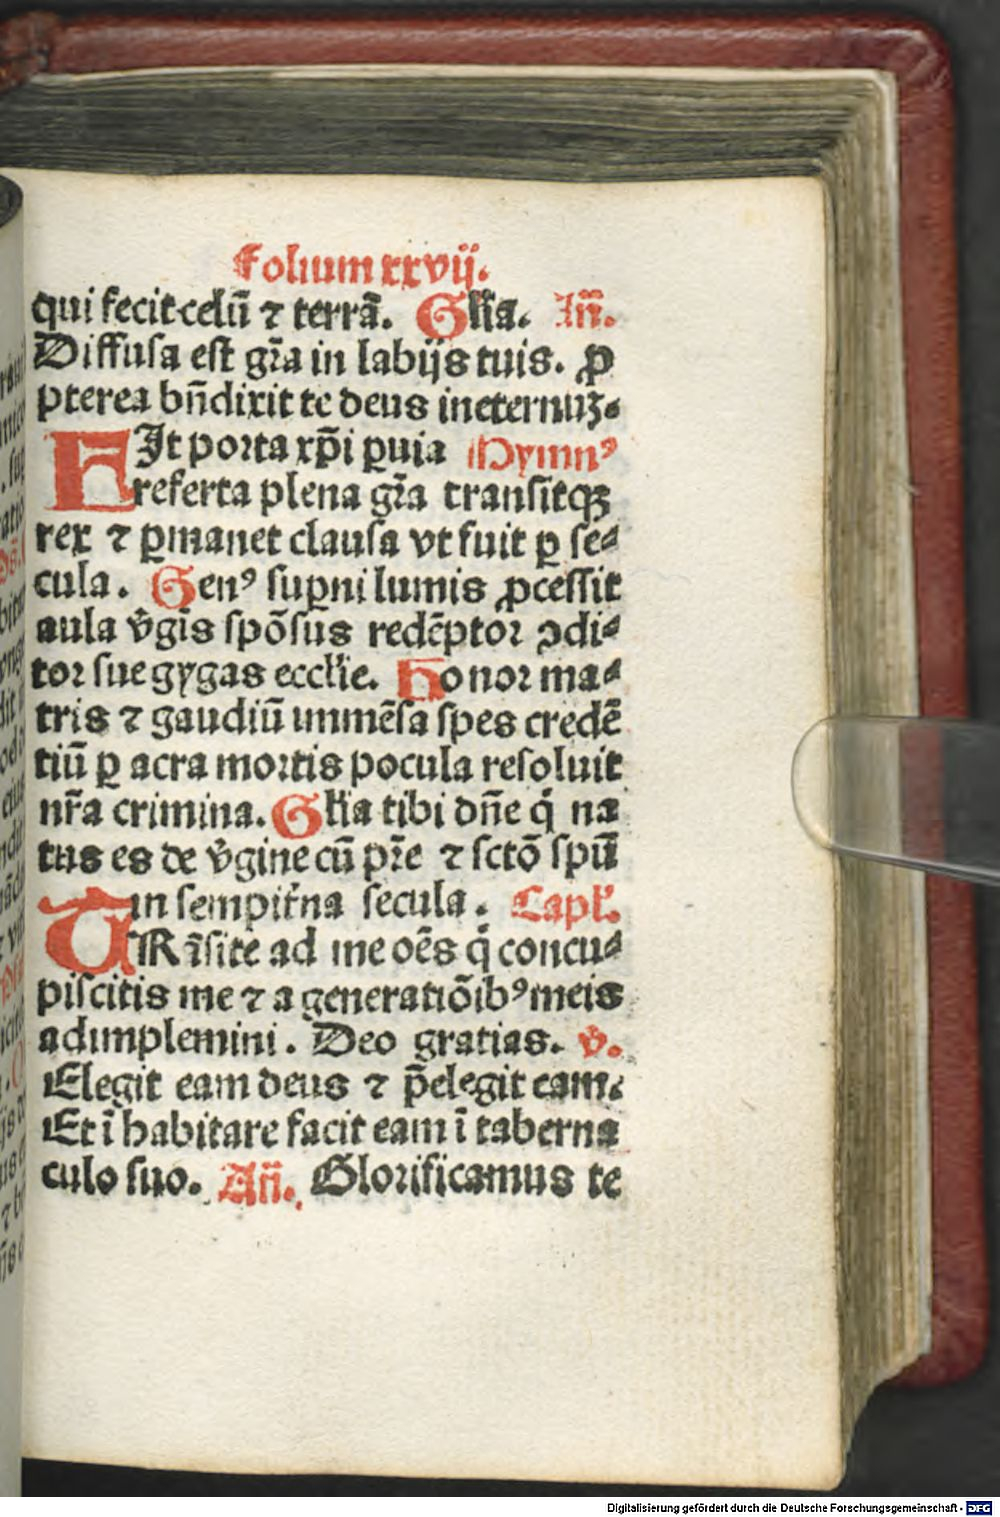 Folium xxvij.
qui fecit celū ⁊ terrā. Gl'ia. Añ.
Diffusa est gr̄a in labijs tuis. ꝓ
pterea bn̄dixit te deus ineternuꝫ.
FJt porta xp̄i ꝑuia Hymnꝰ
referta plena gr̄a transitqꝫ
rex ⁊ ꝑmanet clausa vt fuit ꝑ se⸗
cula. Genꝰ suꝑni lumis ꝓcessit
aula v̄gis spōsus redēptor ꝯdi⸗
tor sue gygas eccl'ie. Honor ma⸗
tris ⁊ gaudiū immēsa spes credē
tiū ꝑ acra mortis pocula resoluit
nr̄a crimina. Gl'ia tibi dn̄e q̇ na
tus es de v̄gine cū pr̄e ⁊ sctō spū
in sempit'na secula. Capl'.
TRāsite ad me oēs q̇ concu⸗
piscitis me ⁊ a generatiōibꝰ meis
adimplemini. Deo gratias. v̄.
Elegit eam deus ⁊ p̄elegit eam.
Et ī habitare facit eam ī taberna
culo suo. Añ. Glorificamus te
Digitalisierung gefördert durch die Deutsche Forschungsgemeinschaft - DFG